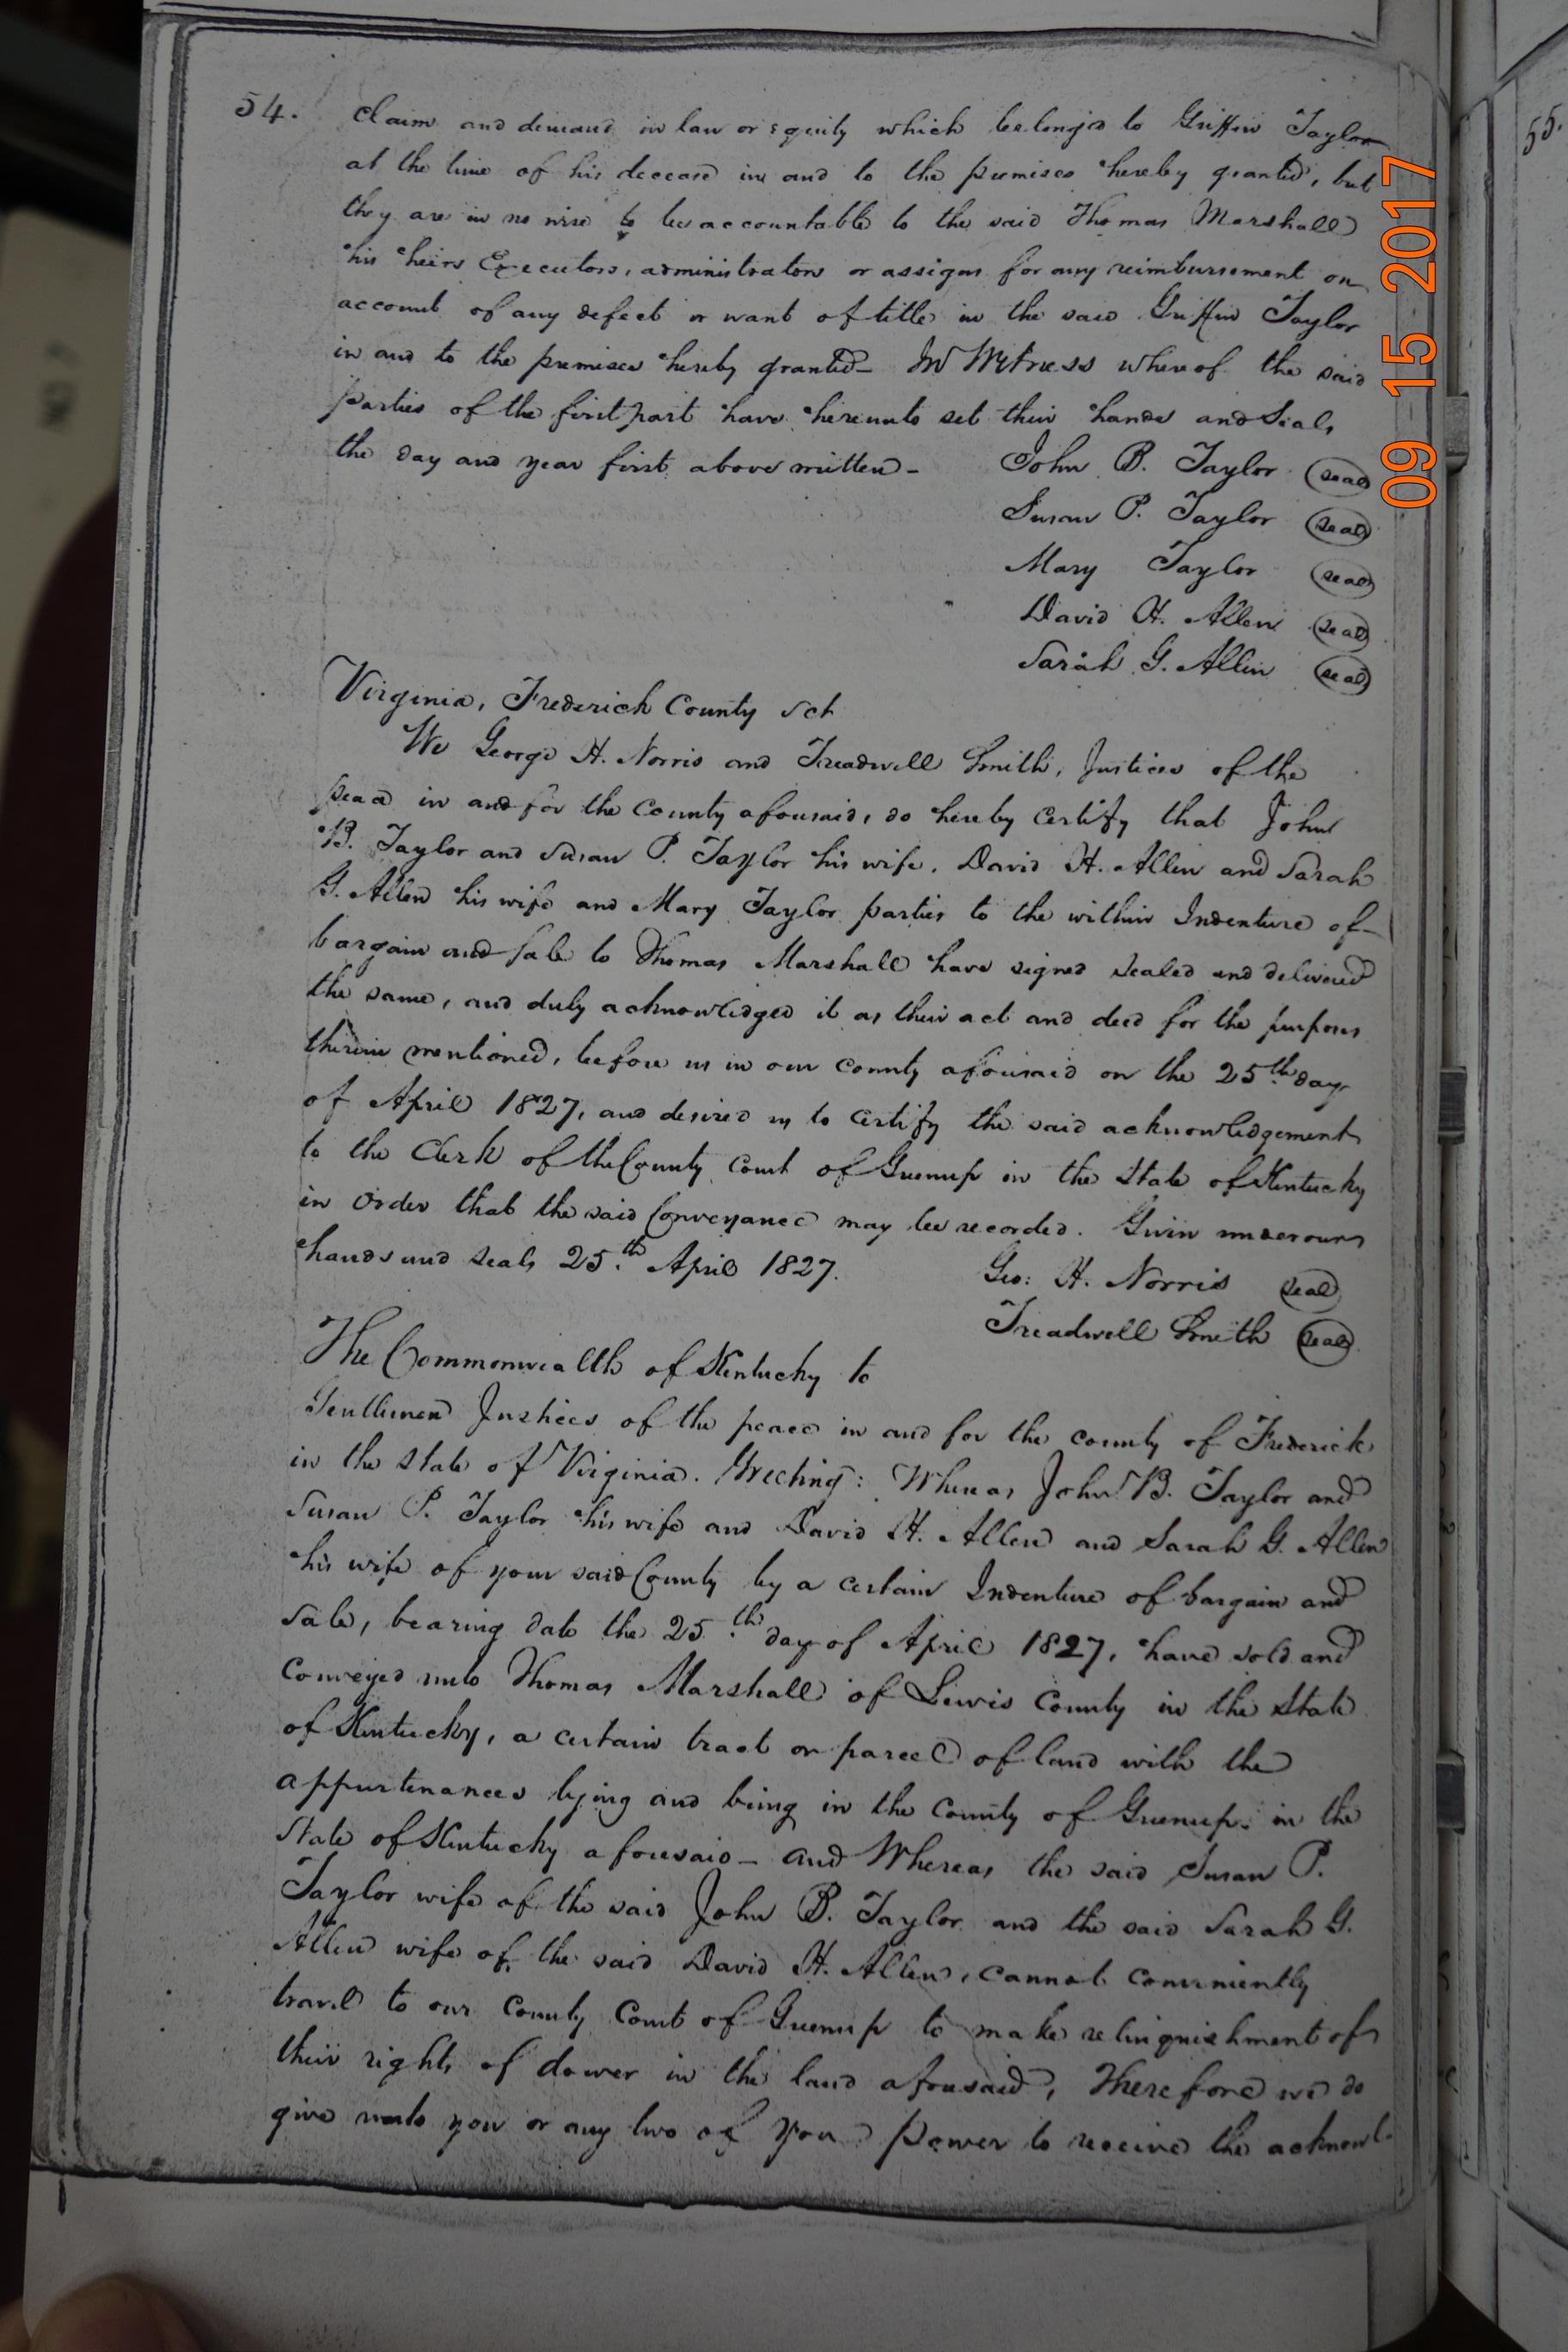 54.
claim and demand in law or equity which belonged to Griffin Taylor
at the time of his decease in and to the premises hereby granted, but
they are in no wise to be accountable to the said Thomas Marshall
his heirs Executors, administrators or assigns for any reimbursement on
account of any defect or want of title in the said Griffin Taylor
in and to the premises hereby granted - In Witness whereof the said
parties of the first part have hereunto set their hands and seals
the day and year first above written -
John B. Taylor seal
Susan P. Taylor seal
Mary Taylor seal
David H. Allen seal
Sarah G. Allen seal
Virginia, Frederick County Sct
We George H. Norris and Treadwell Smith, Justices of the
peace in and for the County aforesaid, do hereby certify that John
B. Taylor and Susan P. Taylor his wife, David H. Allen and Sarah
G. Allen his wife and Mary Taylor parties to the within Indenture of
bargain and sale to Thomas Marshall have signed sealed and delivered
the same, and duly acknowledged it as their act and deed for the purposes
therein mentioned, before us in our county aforesaid on the 25th day
of April 1827, and desired us to certify the said acknowledgement
to the Clerk of the County Court of Greenup in the State of Kentucky
in order that the said Conveyance may be recorded. Given under our
hands and seals 25.th April 1827.
Geo: H. Norris seal
Treadwell Smith seal
The Commonwealth of Kentucky to
Gentlemen Justices of the peace in and for the county of Frederick
in the state of Virginia. Greeting: Whereas John B. Taylor and
Susan P. Taylor his wife and David H. Allen and Sarah G. Allen
his wife of your said County by a certain Indenture of bargain and
sale, bearing date the 25.th day of April 1827, have sold and
conveyed unto Thomas Marshall of Lewis County in the State
of Kentucky, a certain tract or parcel of land with the
appurtenances lying and being in the County of Greenup in the
State of Kentucky aforesaid - and Whereas the said Susan P.
Taylor wife of the said John B. Taylor and the said Sarah G.
Allen wife of the said David H. Allen, cannot conveniently
travel to our County Court of Greenup to make relinquishment of
their rights of dower in the land aforesaid, Therefore we do
give unto you or any two of you power to receive the acknowl-
09 15 2017
55.